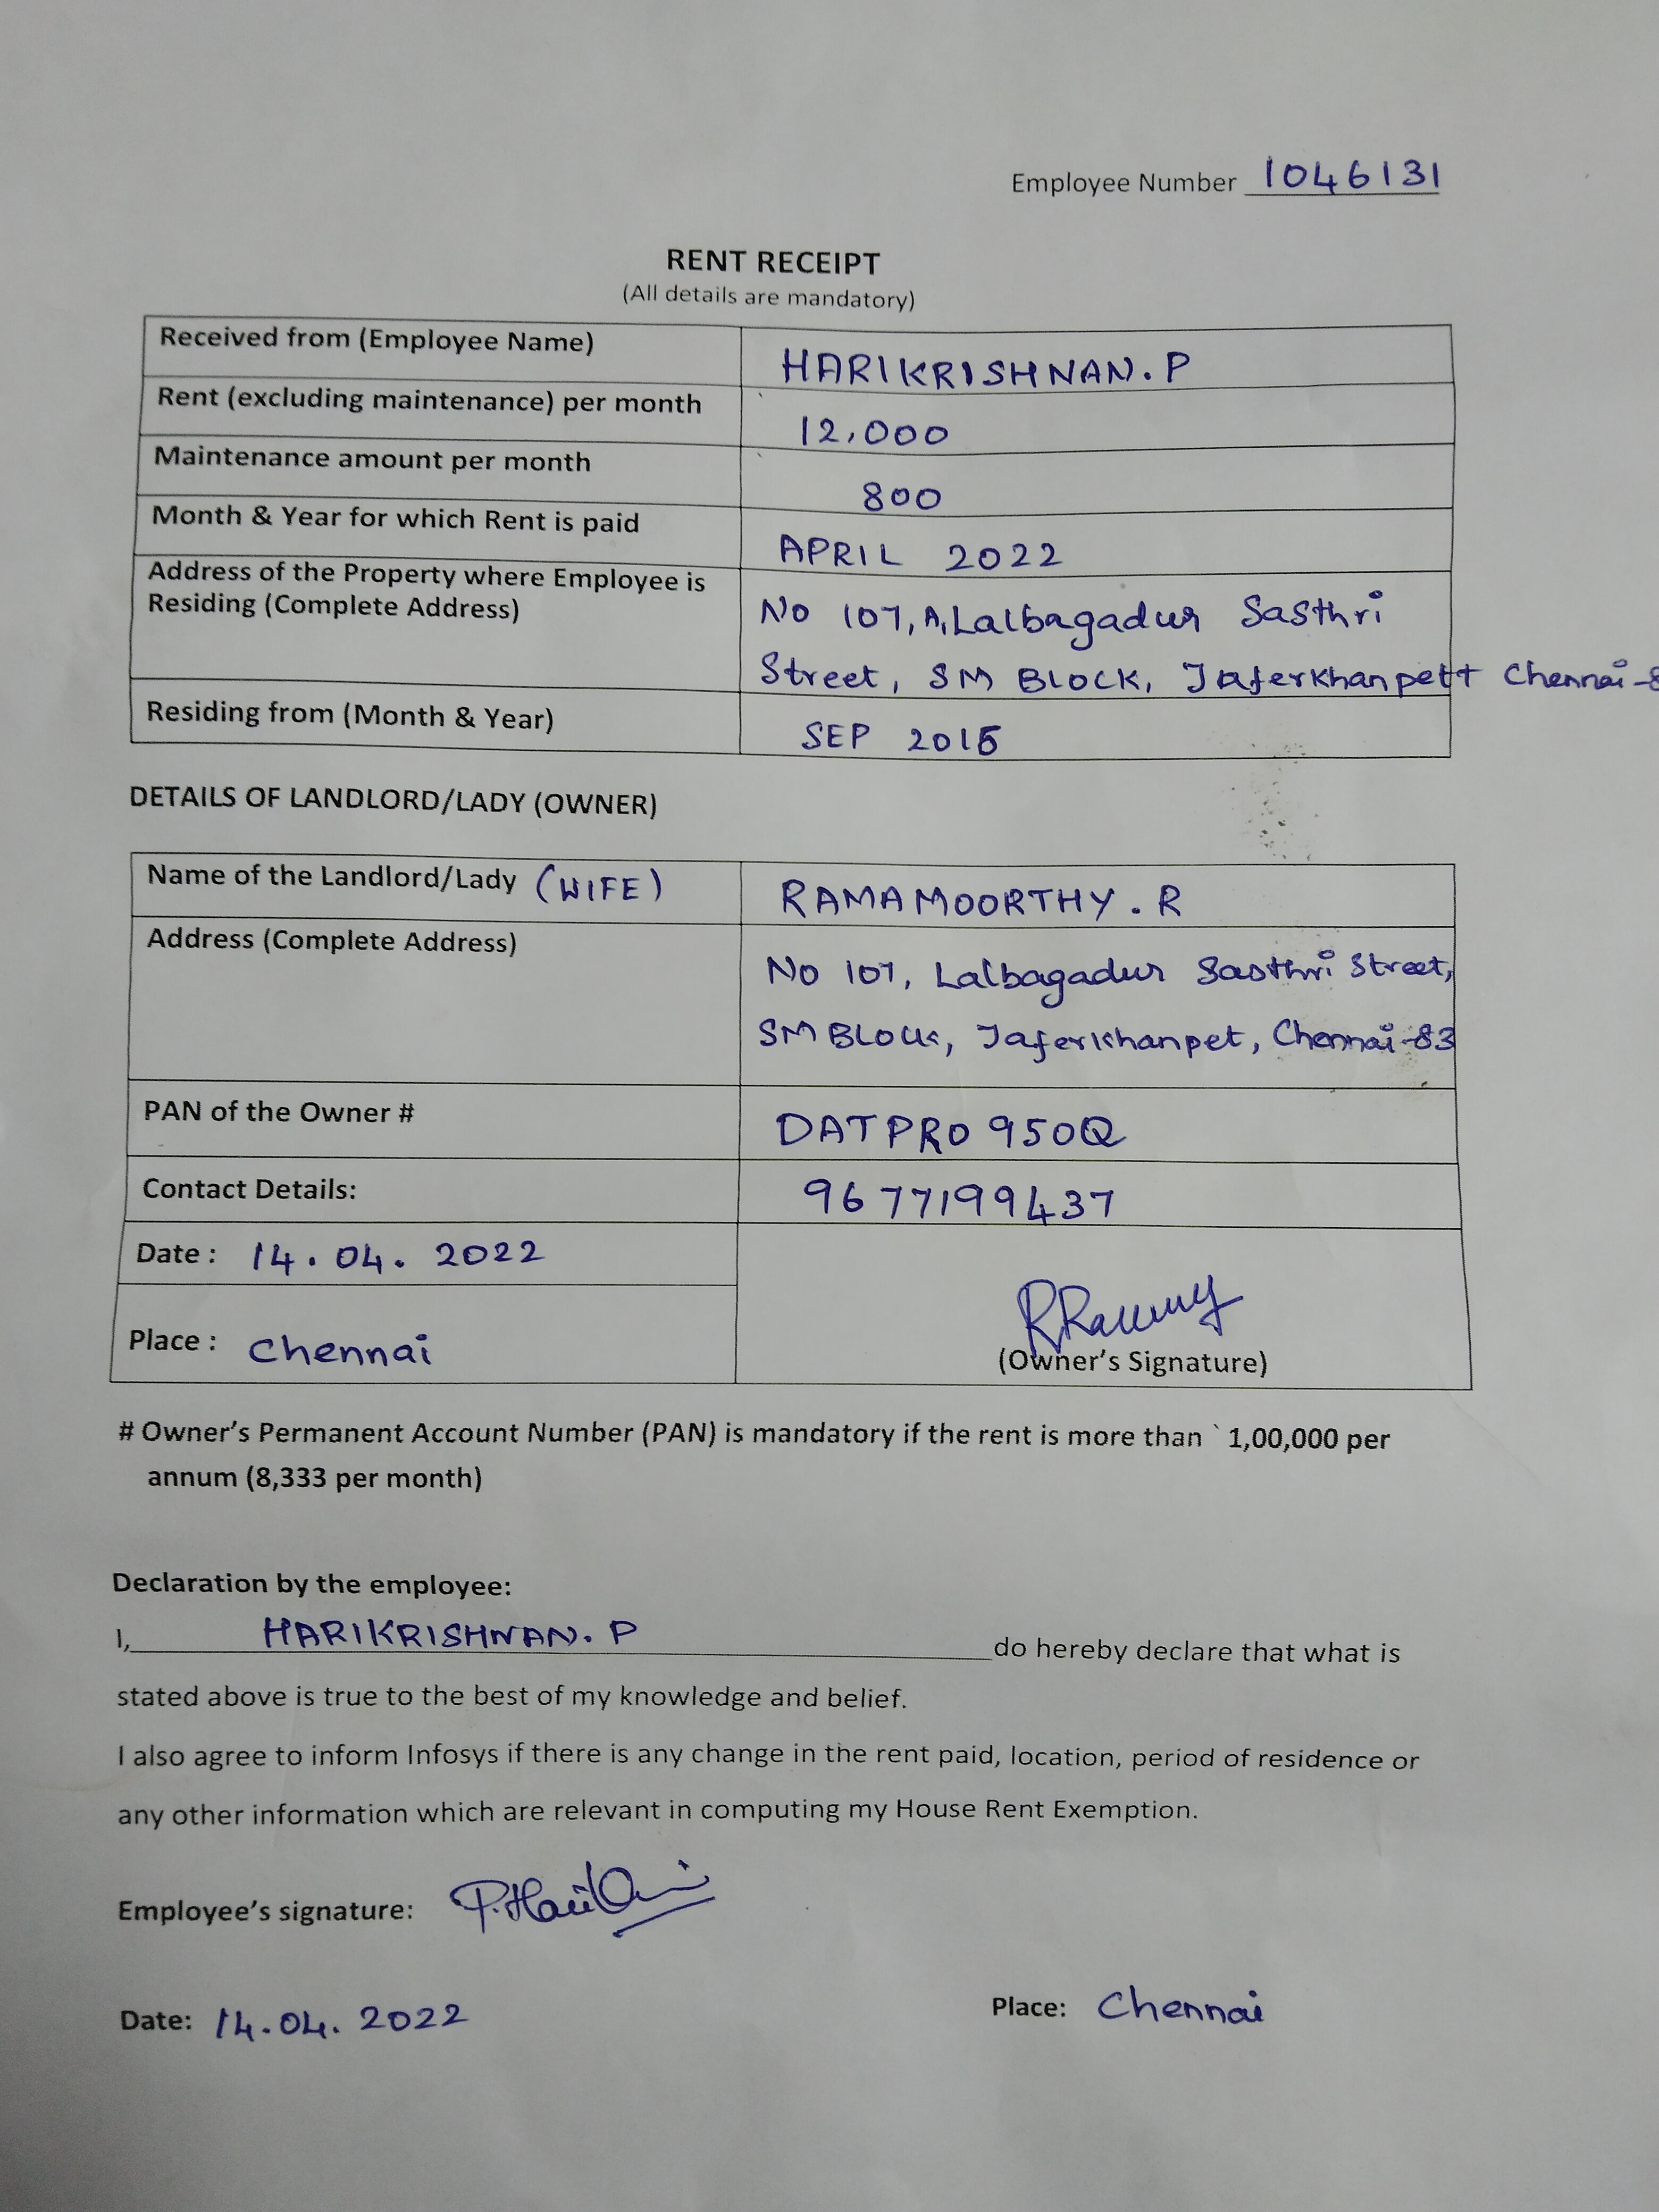 Employee Number 1046131
RENT RECEIPT
(All details are mandatory)
Received from (Employee Name) HARIKRISHNAN. P
Rent (excluding maintenance) per month 12,000
Maintenance amount per month 800
Month & Year for which Rent is paid APRIL 2022
Address of the Property where Employee is
Residing (Complete Address) No 107, A, Lalbagadur Sasthri
Street, SM BLOCK, Jaferkhanpett Chennai-8
Residing from (Month & Year) SEP 2015
DETAILS OF LANDLORD/LADY (OWNER)
Name of the Landlord/Lady (WIFE) RAMAMOORTHY. R
Address (Complete Address) No 107, Lalbagadur Sasthri Street,
SM BLOCK, Jaferkhanpet, Chennai-83
PAN of the Owner # DATPR0950Q
Contact Details: 9677199437
Date : 14.04.2022
Place : Chennai
(Owner's Signature)
# Owner's Permanent Account Number (PAN) is mandatory if the rent is more than ` 1,00,000 per
annum (8,333 per month)
Declaration by the employee:
I, HARIKRISHNAN. P do hereby declare that what is
stated above is true to the best of my knowledge and belief.
I also agree to inform Infosys if there is any change in the rent paid, location, period of residence or
any other information which are relevant in computing my House Rent Exemption.
Employee's signature:
Date: 14.04.2022 Place: Chennai